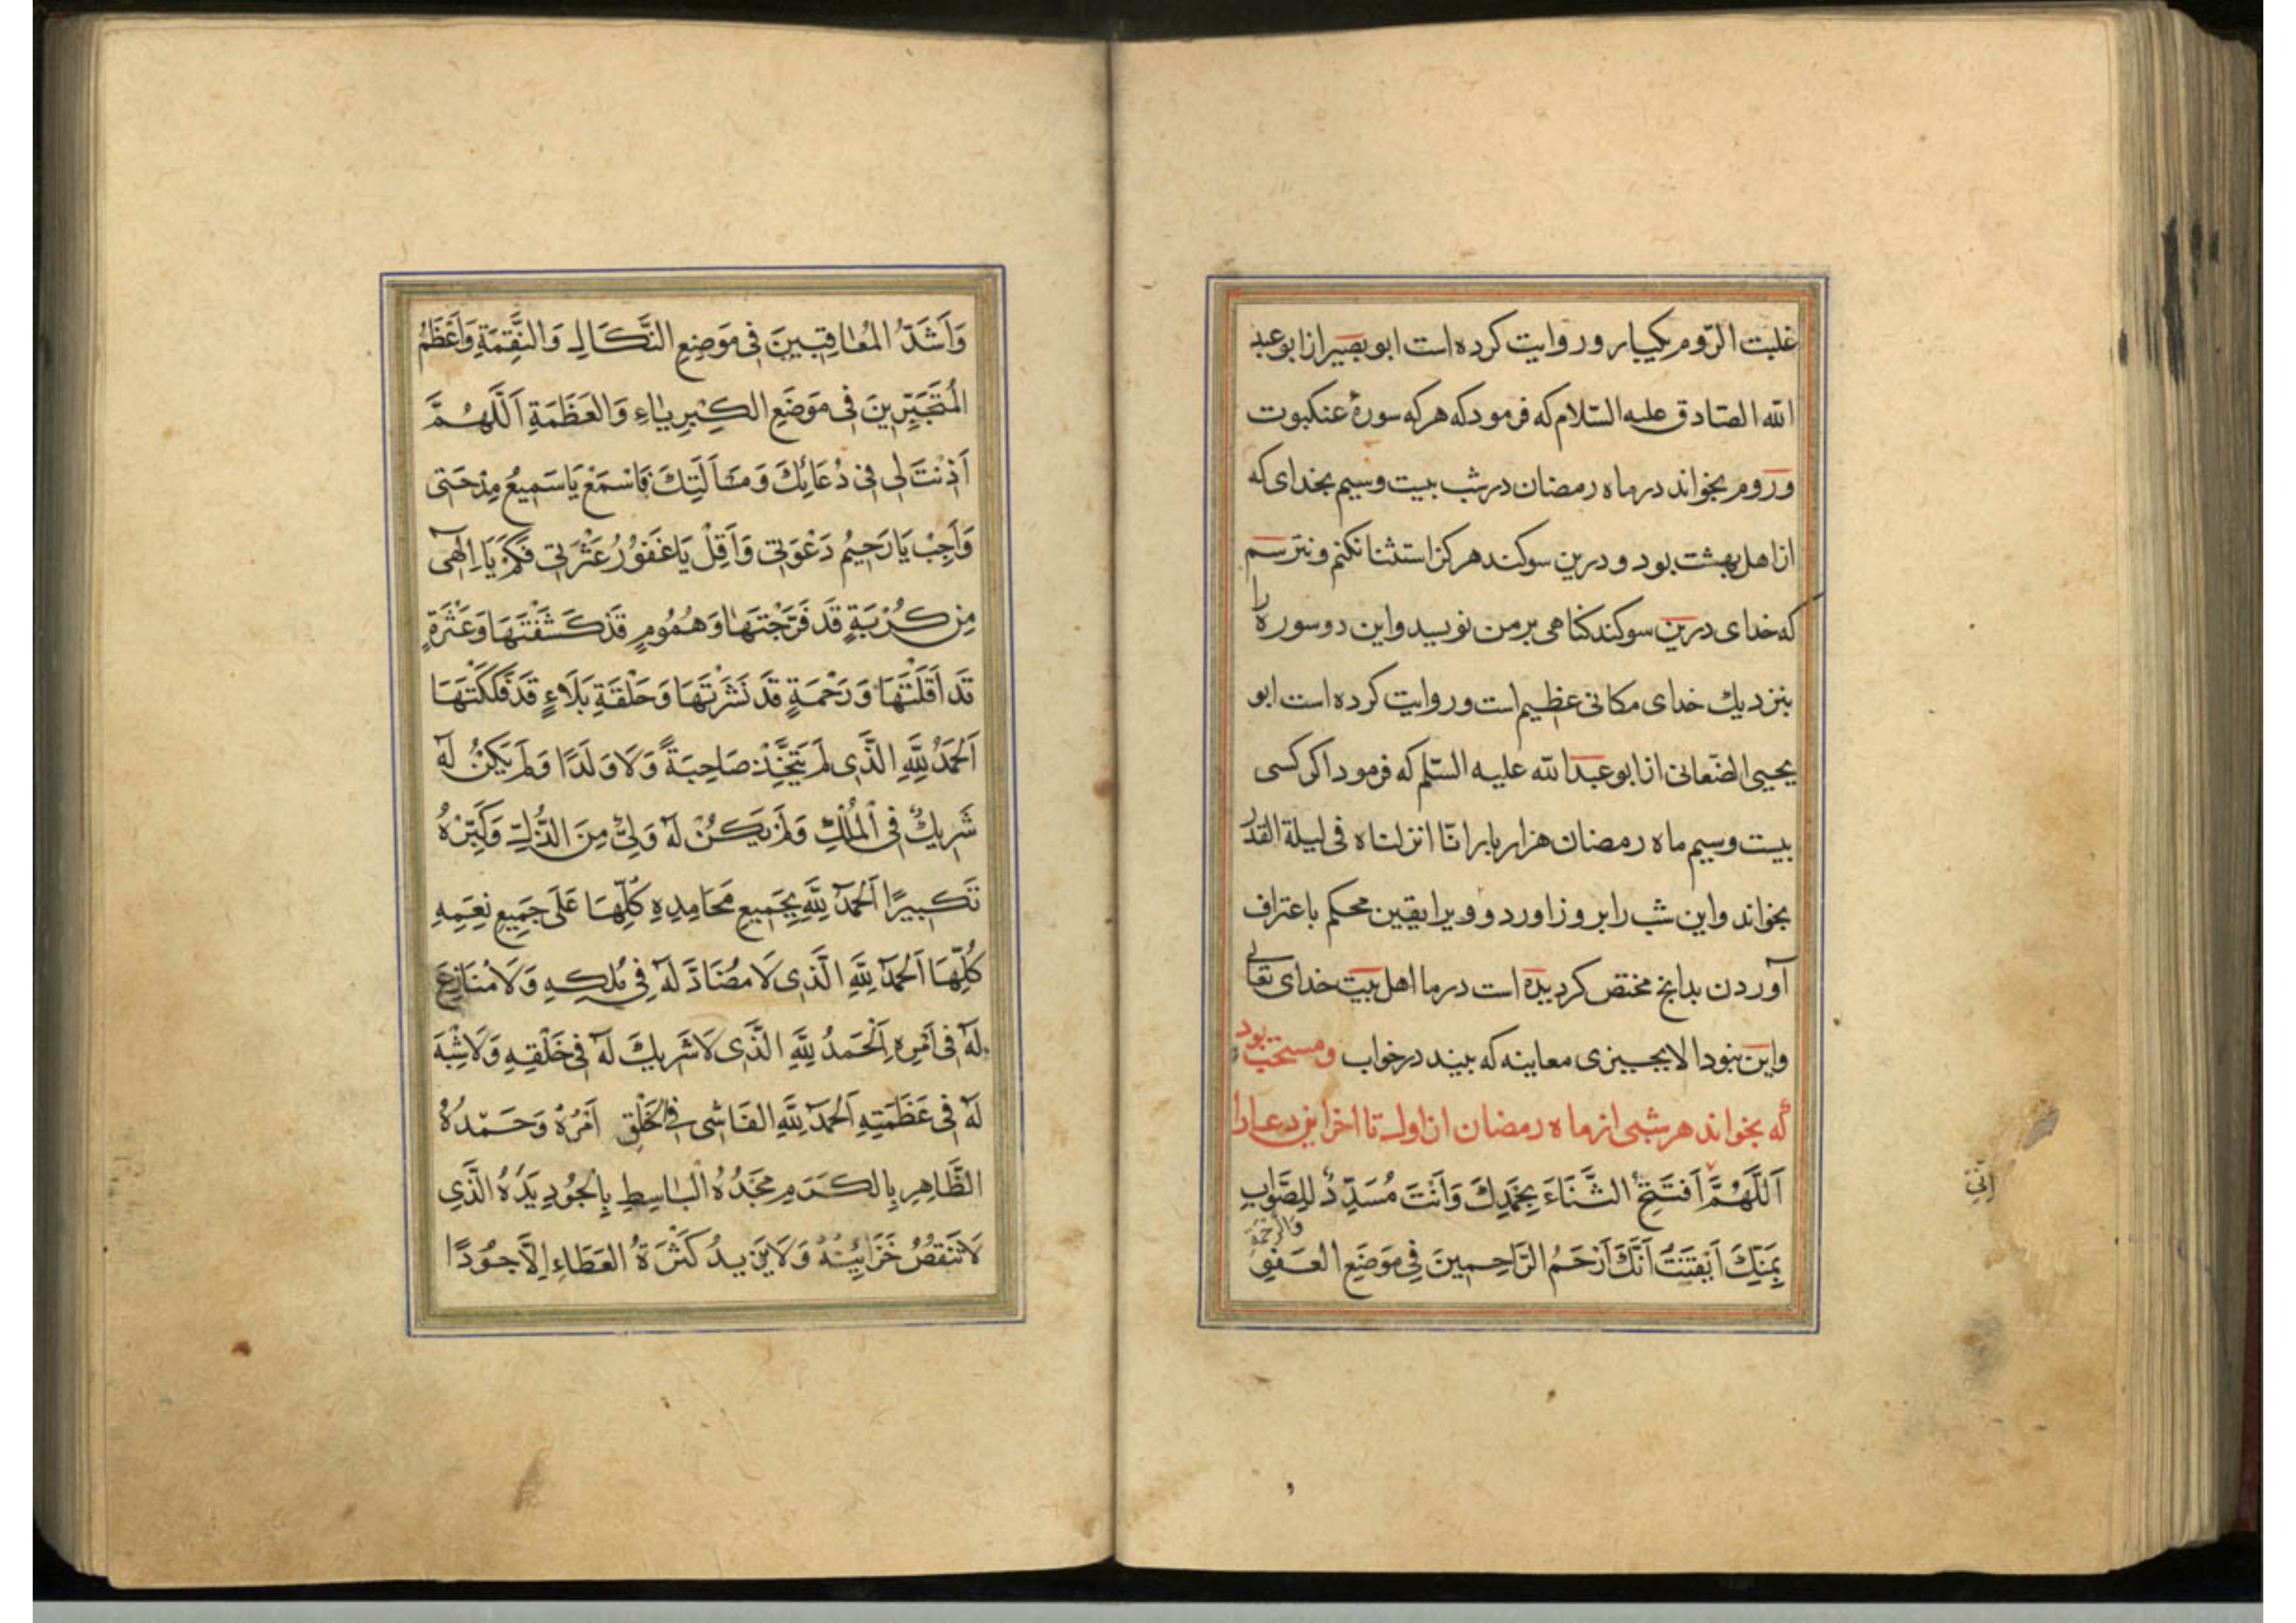 غلبت الرّوم یکبار و روایت کرده است ابو بصیر از ابو عبد
الله الصّادق علیه السّلام که فرمود که هر که سورهٔ عنکبوت
و روم بخواند در ماه رمضان در شب بیست و سیم بخدای که
از اهل بهشت بود و درین سوکند هرکز استثنا نکنم و نترسم
که خدای درین سوکند کناهی بر من نویسد و این دو سوره را
بنزدیك خدای مکانی عظیم است و روایت کرده است ابو
یحیی الصّنعانی از ابو عبد الله علیه السّلم که فرمود اکر کسی
بیست و سیم ماه رمضان هزار بار انّا انزلناه فی لیلة القدر
بخواند و این شب را بروز اورد و ویرا یقین محکم باعتراف
آوردن بدانچ مختص کردیده است در ما اهل بیت خدای تعالی
و این نبود الا بچیزی معاینه که بیند در خواب و مستحب بود
که بخواند هر شبی از ماه رمضان از اول تا اخر این دعا را
اَللَّهُمَّ اَفتَتِحُ الثَّنَاءَ بِحَمْدِكَ وَاَنْتَ مُسَدِّدٌ لِلصَّوَابِ
بِمَنِّكَ اَيْقَنْتُ اَنَّكَ اَرْحَمُ الرَّاحِمِينَ فِي مَوْضَعِ العَفوِ وَالرَّحْمَةِ
اِنِّي
وَاَشَدُّ المُعَاقِبِينَ فِى مَوْضِعِ النَّكَالِ وَالنَّقِمَةِ وَاَعْظَمُ
المُتَجَبِّرِينَ فِى مَوْضَعِ الكِبْرِيَاءِ وَالعَظَمَةِ اَللَّهُمَّ
اَذِنْتَ لِى فِى دُعَائِكَ وَمَسْاَلَتِكَ فَاسْمَعْ يَا سَمِيعُ مِدْحَتِى
وَاَجِبْ يَا رَحِيمُ دَعْوَتِى وَاَقِلْ يَا غَفُورُ عَثْرَتِى فَكَمْ يَا اِلٰهِى
مِن كُرْبَةٍ قَد فَرَّجْتَهَا وَهُمُومٍ قَدْ كَشَفْتَهَا وَعَثْرَةٍ
قَد اَقَلْتَهَا وَرَحْمَةٍ قَد نَشَرْتَهَا وَحَلْقَةِ بَلَاءٍ قَد فَكَكْتَهَا
اَلحَمْدُ لِلَّهِ الَّذِى لَم يَتَّخِذْ صَاحِبَةً وَلَا وَلَدًا وَلَم يَكُنْ لَهُ
شَرِيكٌ فِى الْمُلْكِ وَلَم يَكُنْ لَهُ وَلِىٌّ مِنَ الذُّلِّ وَكَبِّرْهُ
تَكبِيرًا اَلحَمْدُ لِلَّهِ بِجَمِيعِ مَحَامِدِهِ كُلِّهَا عَلَى جَمِيعِ نِعَمِهِ
كُلِّهَا اَلحَمْدُ لِلَّهِ الَّذِى لَا مُضَادَّ لَهُ فِى مُلكِهِ وَلَا مُنَازِعَ
لَهُ فِى اَمْرِهِ اَلْحَمدُ لِلَّهِ الَّذِى لَا شَرِيكَ لَهُ فِى خَلْقِهِ وَلَا شِبْهَ
لَهُ فِى عَظَمَتِهِ اَلحَمْدُ لِلَّهِ الفَاشِى فِى الخَلْقِ اَمْرُهُ وَحَمْدُهُ
الظَّاهِرِ بِالكَرَمِ مَجْدُهُ البَاسِطِ بِالْجُودِ يَدَهُ الَّذِى
لَا تَنقُصُ خَزَائِنُهُ وَلَا يَزِيدُ كَثْرَةُ العَطَاءِ اِلَّا جُوْدًا